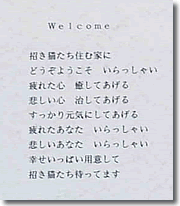 Welcome
招き猫たち住む家に
どうぞようこそ　いらっしゃい
疲れた心　癒してあげる
悲しい心　治してあげる
すっかり元気にしてあげる
疲れたあなた　いらっしゃい
悲しいあなた　いらっしゃい
幸せいっぱい用意して
招き猫たち待ってます